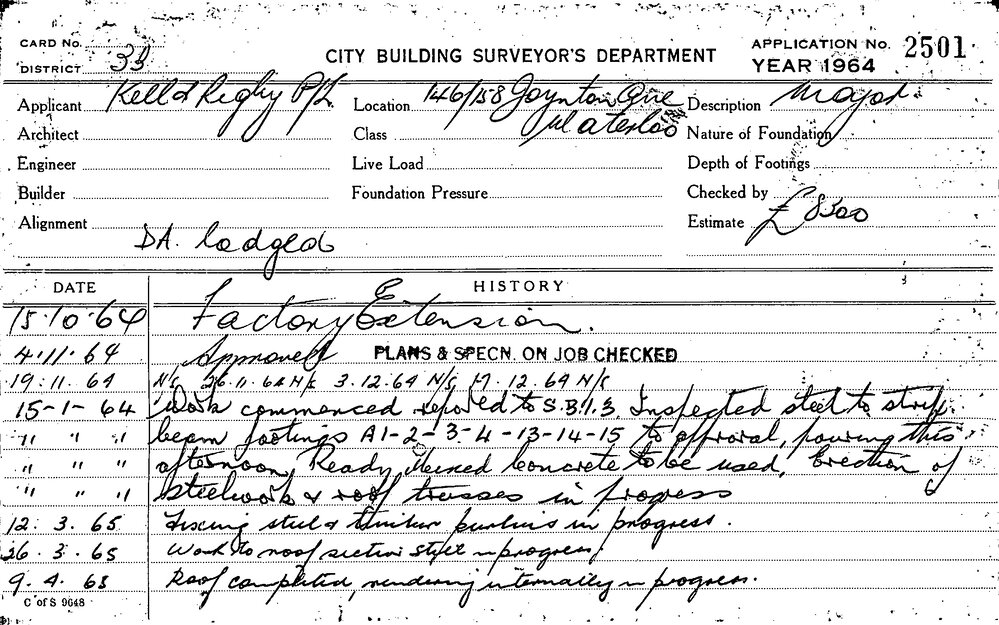 CARD No.
CITY BUILDING SURVEYOR'S DEPARTMENT
APPLICATION No. 2501
DISTRICT 33
YEAR 1964
Applicant Kell & Rigby P/L Location 146/158 Joynton Ave Description Major
Architect Class Waterloo Nature of Foundation
Engineer Live Load Depth of Footings
Builder Foundation Pressure Checked by
Alignment Estimate £ 8500
DA. lodged
DATE HISTORY
15·10·64 Factory Extension.
4·11·64 Approved PLANS & SPECN. ON JOB CHECKED
19:11.64 N/s 26.11.64 N/s 3.12.64 N/s 17.12.64 N/s
15-1-64 Work commenced reported to S.B.I.3. Inspected steel to strip
" " " beam footings A1-2-3-4-13-14-15 to approval, pouring this
" " " afternoon, Ready Mixed Concrete to be used, Erection of
" " " steelwork & roof trusses in progress
12. 3. 65 Fixing steel & timber purlins in progress.
26. 3. 65 Work to roof section in progress.
9. 4. 65 Roof completed, rendering internally in progress.
C of S 9648